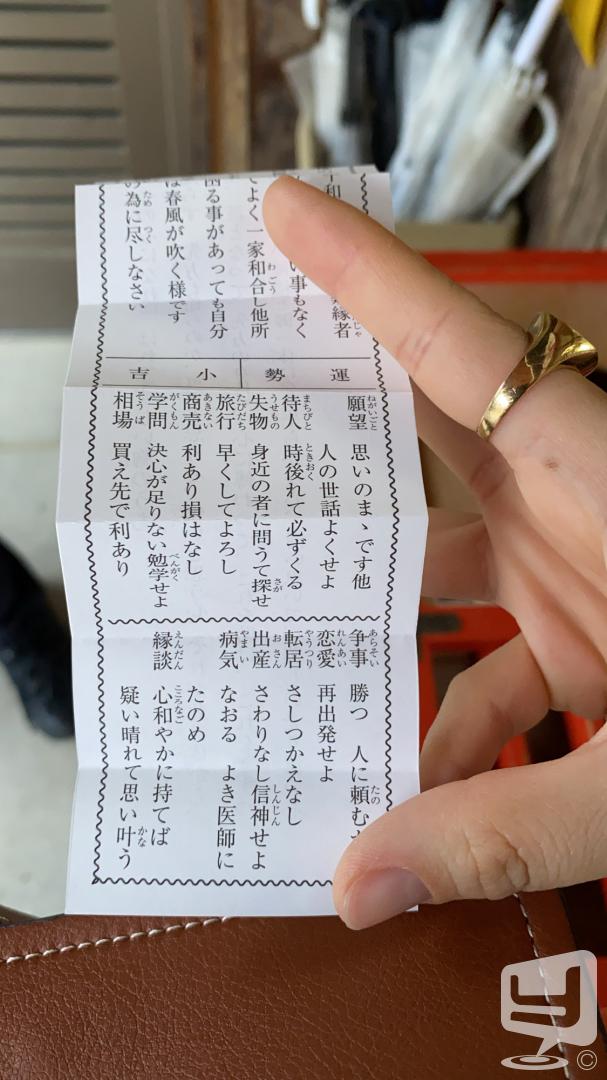 縁者
い事もなく
てよく一家和合し他所
困る事があっても自分
は春風が吹く様です
の為に尽しなさい
運勢 小吉
願望 思いのまゝです他
人の世話よくせよ
待人 時後れて必ずくる
失物 身近の者に問うて探せ
旅行 早くしてよろし
商売 利あり損はなし
学問 決心が足りない勉学せよ
相場 買え先で利あり
争事 勝つ 人に頼む
恋愛 再出発せよ
転居 さしつかえなし
出産 さわりなし信神せよ
病気 なおる よき医師に
たのめ
縁談 心和やかに持てば
疑い晴れて思い叶う